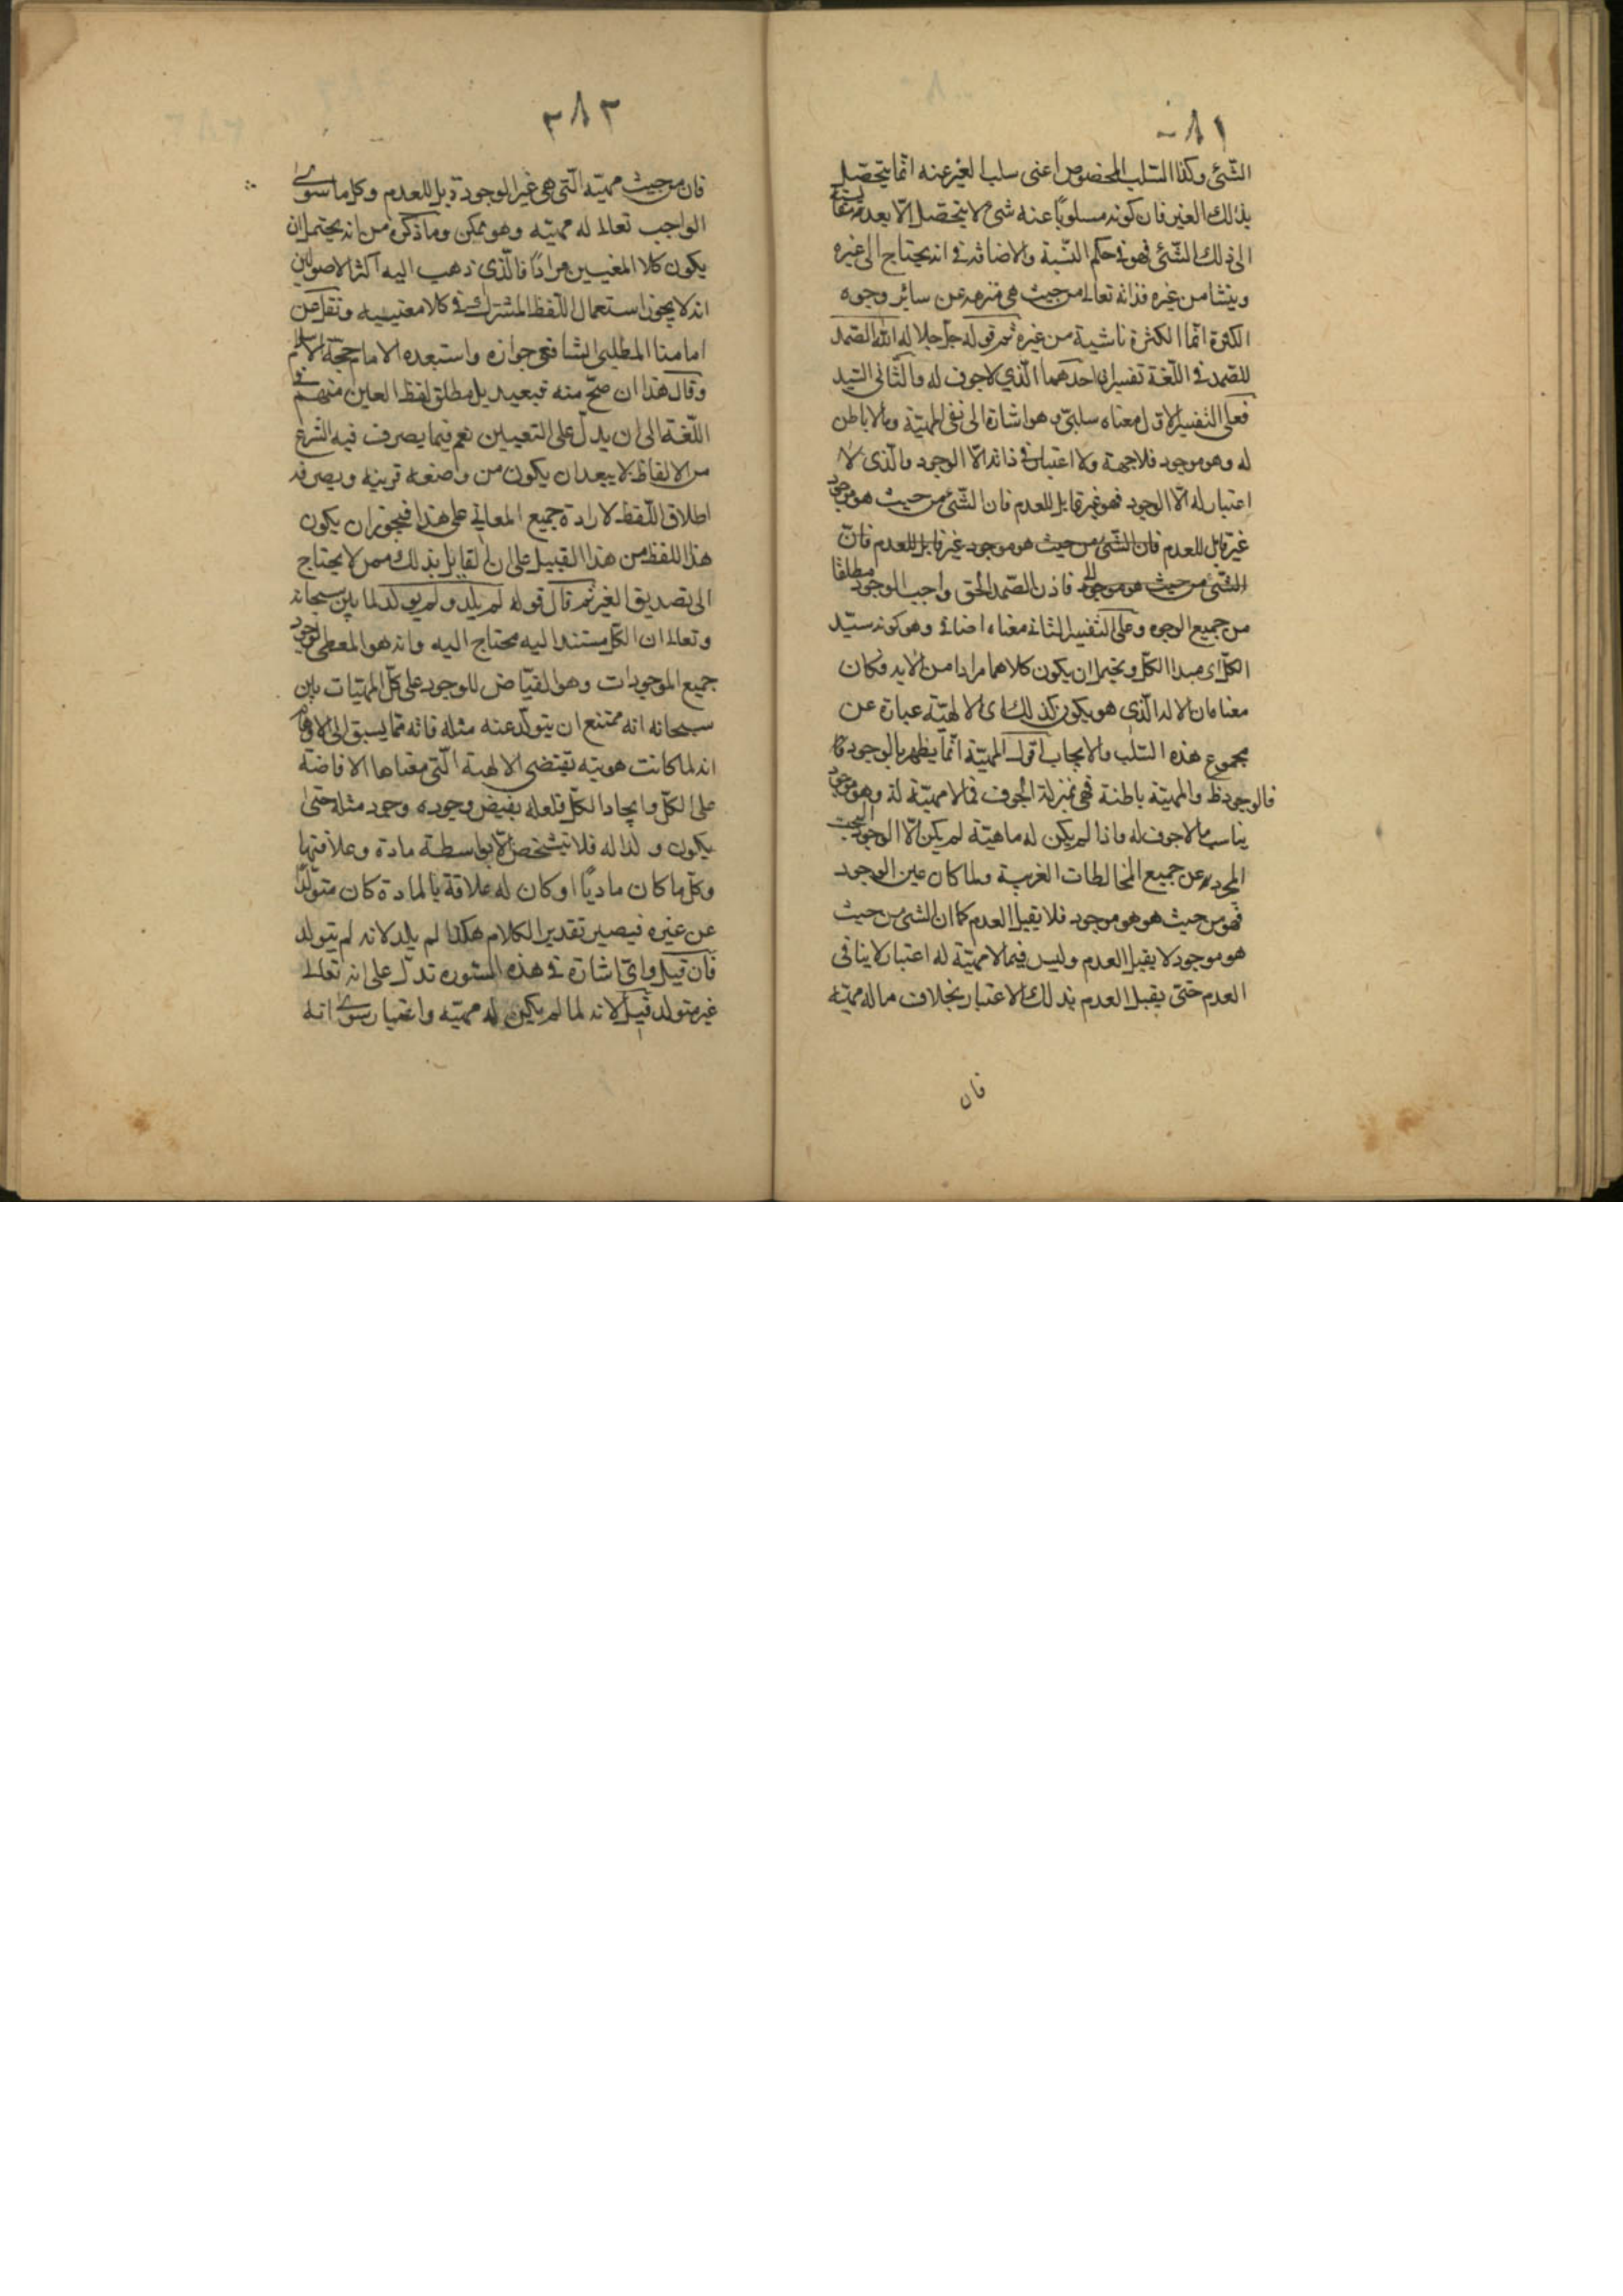 ٠٨١
الشئ وكذا السلب المخصوص اعنى سلب الغير عنه انما يتحصل
بذلك الغير فان كونه مسلوبا عنه شئ لا يتحصل الا بعد
الى ذلك الشئ فهو فى حكم النسبة والاضافة فى انه يحتاج الى غيره
وينشا من غيره فذاته تعالى من حيث هى منزهه عن سائر وجوه
الكثرة انما الكثرة ناشية من غيره ثم قوله جل جلاله الله الصمد
للصمد فى اللغة تفسيران احدهما الذي لا جوف له والثانى السيد
فعلى التفسير الاول معناه سلبى وهو اشارة الى نفى المهية وما لا باطن
له وهو موجود فلا جهة ولا اعتبار فى ذاته الا الوجود والذى لا
اعتبار له الا الوجود فهو غير قابل للعدم فان الشئ من حيث هو موجود
غير قابل للعدم فان الشئ من حيث هو موجود غير قابل للعدم فان
الشئ من حيث هو موجود فاذن الصمد الحق واجب الوجود مطلقا
من جميع الوجوه وعلى التفسير الثانى معناه اضافى وهو كونه سيد
الكل اى مبدا الكل ويحتمل ان يكون كلاهما مرادا من الاية فكان
معناه ان الاله الذى هو يكون كذلك اى الالهية عبارة عن
مجموع هذه السلب والايجاب اقول المهية انما يظهر بالوجود
فالوجود ظ والمهية باطنة فهى بمنزلة الجوف فما لا مهية له وهو موجود
يناسب ما لا جوف له واذا لم يكن له ماهية لم يكن الا الوجود البحت
المجرد عن جميع المخالطات الغريبة ولما كان عين الوجود
فهو من حيث هو هو موجود فلا يقبل العدم كما ان الشئ من حيث
هو موجود لا يقبل العدم وليس فيما لا مهية له اعتبار لا ينافى
العدم حتى يقبل العدم بذلك الاعتبار بخلاف ما له مهية
فان
٣٨٢
فان من حيث مهيته التى هى غير الوجود قابل للعدم وكل ما سوى
الواجب تعالى له مهية وهو ممكن وما ذكره من انه يحتمل ان
يكون كلا المعنيين مرادا فالذى ذهب اليه اكثر الاصوليين
انه لا يجوز استعمال اللفظ المشترك فى كلا معنييه ونقل عن
امامنا المطلبى الشافعى جوازه واستبعده الامام حجة الاسلام
وقال هذا ان صح منه فبعيد بل مطلق لفظ العين مبهم فى
اللغة الى ان يدل على التعيين نعم فيما يصرف فيه الشرع
من الالفاظ لا يبعد ان يكون من واضعه قرينة ويصرفه
اطلاق اللفظ لارادة جميع المعانى على هذا فيجوز ان يكون
هذا اللفظ من هذا القبيل على ان القايل بذلك ممن لا يحتاج
الى تصديق الغير ثم قال قوله لم يلد ولم يولد لما بين سبحانه
وتعالى ان الكل مستند اليه محتاج اليه وانه هو المعطى لوجود
جميع الموجودات وهو الفياض للوجود على كل المهيات بين
سبحانه انه ممتنع ان يتولد عنه مثله فانه مما يسبق الى الاوهام
انه لما كانت هويته تقتضى الالهية التى معناها الافاضة
على الكل وايجاد الكل فلعله يفيض وجوده وجود مثله حتى
يكون ولدا له فلا يتشخص الا بواسطة مادة وعلاقتها
وكل ما كان ماديا او كان له علاقة بالمادة كان متولدا
عن غيره فيصير تقدير الكلام هكذا لم يلد لانه لم يتولد
فان قيل واى اشارة فى هذه السورة تدل على انه تعالى
غير متولد قيل لانه لما لم يكن له مهية واعتبار سوى انه